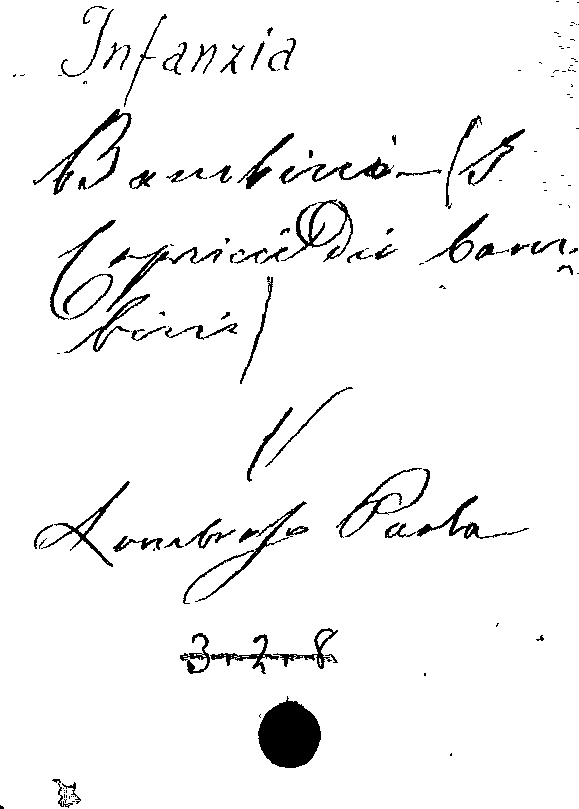 Infanzia
Bambini - (I
Capricci dei bam-
bini)
V
Lombroso Paola
3-2-8